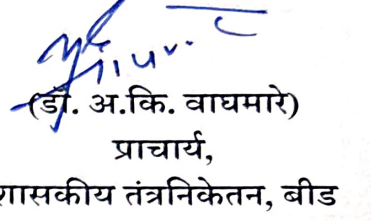 (डॉ. अ.कि. वाघमारे)
प्राचार्य,
शासकीय तंत्रनिकेतन, बीड